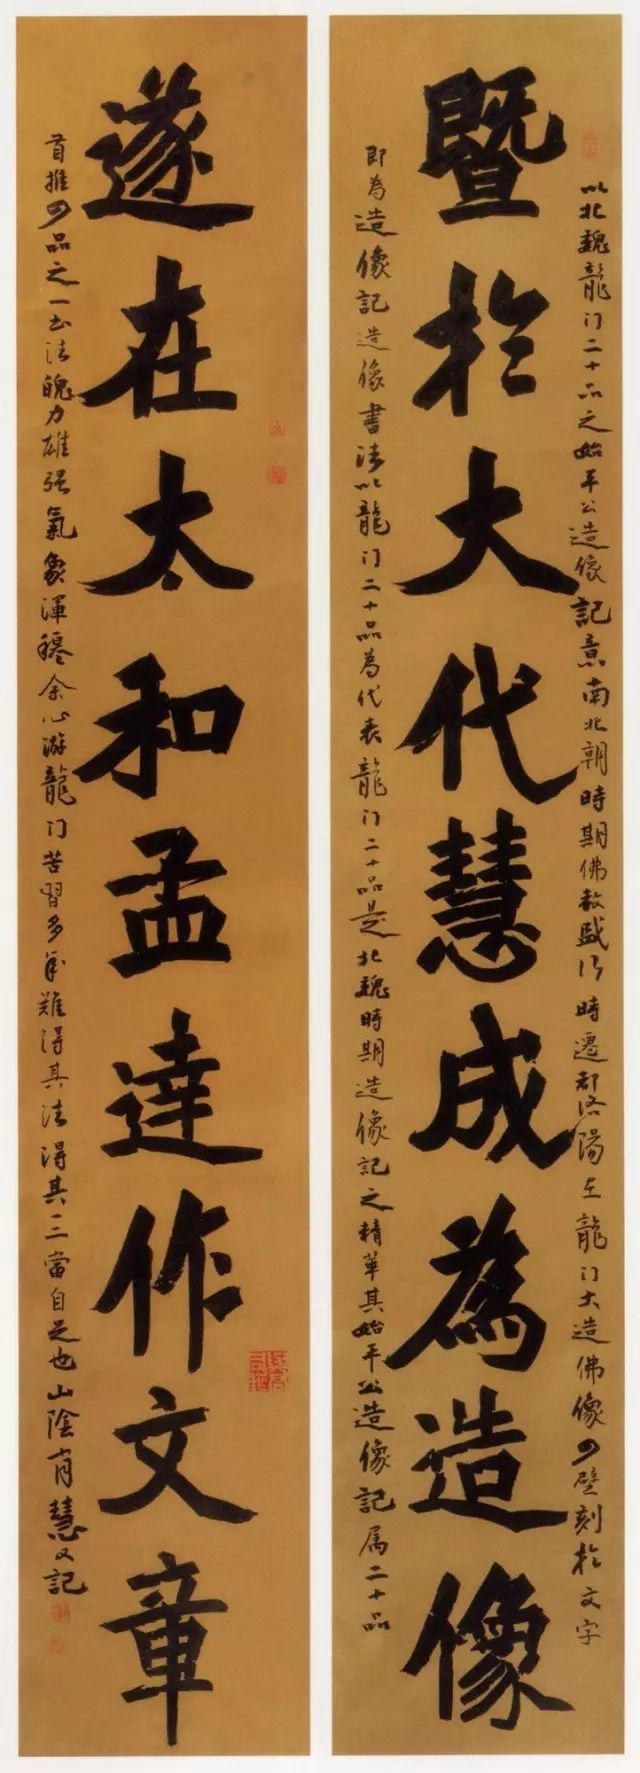 以北魏龍门二十品之始平公造像記意南北朝時期佛教盛行時遷都洛陽在龍门大造佛像四壁刻於文字
暨於大代慧成為造像
即為造像記造像書法以龍门二十品為代表龍门二十品是北魏時期造像記之精華其始平公造像記属二十品
遂在太和孟達作文章
首推四品之一书法魄力雄强氣象渾穆余心游龍门苦習多年難得其法得其當自足也山陰肖慧又記